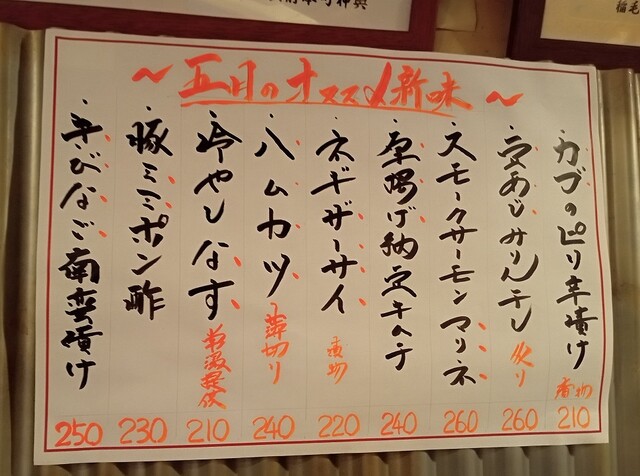 ～五月のオススメ新味～
・カブのピリ辛漬け 香物 210
・豆あじみりん干し 炙り 260
・スモークサーモンマリネ 260
・厚揚げ納豆キムチ 240
・ネギザーサイ 漬物 220
・ハムカツ 薄切り 240
・冷やしなす 210
・豚ミミポン酢 230
・きびなご南蛮漬け 250